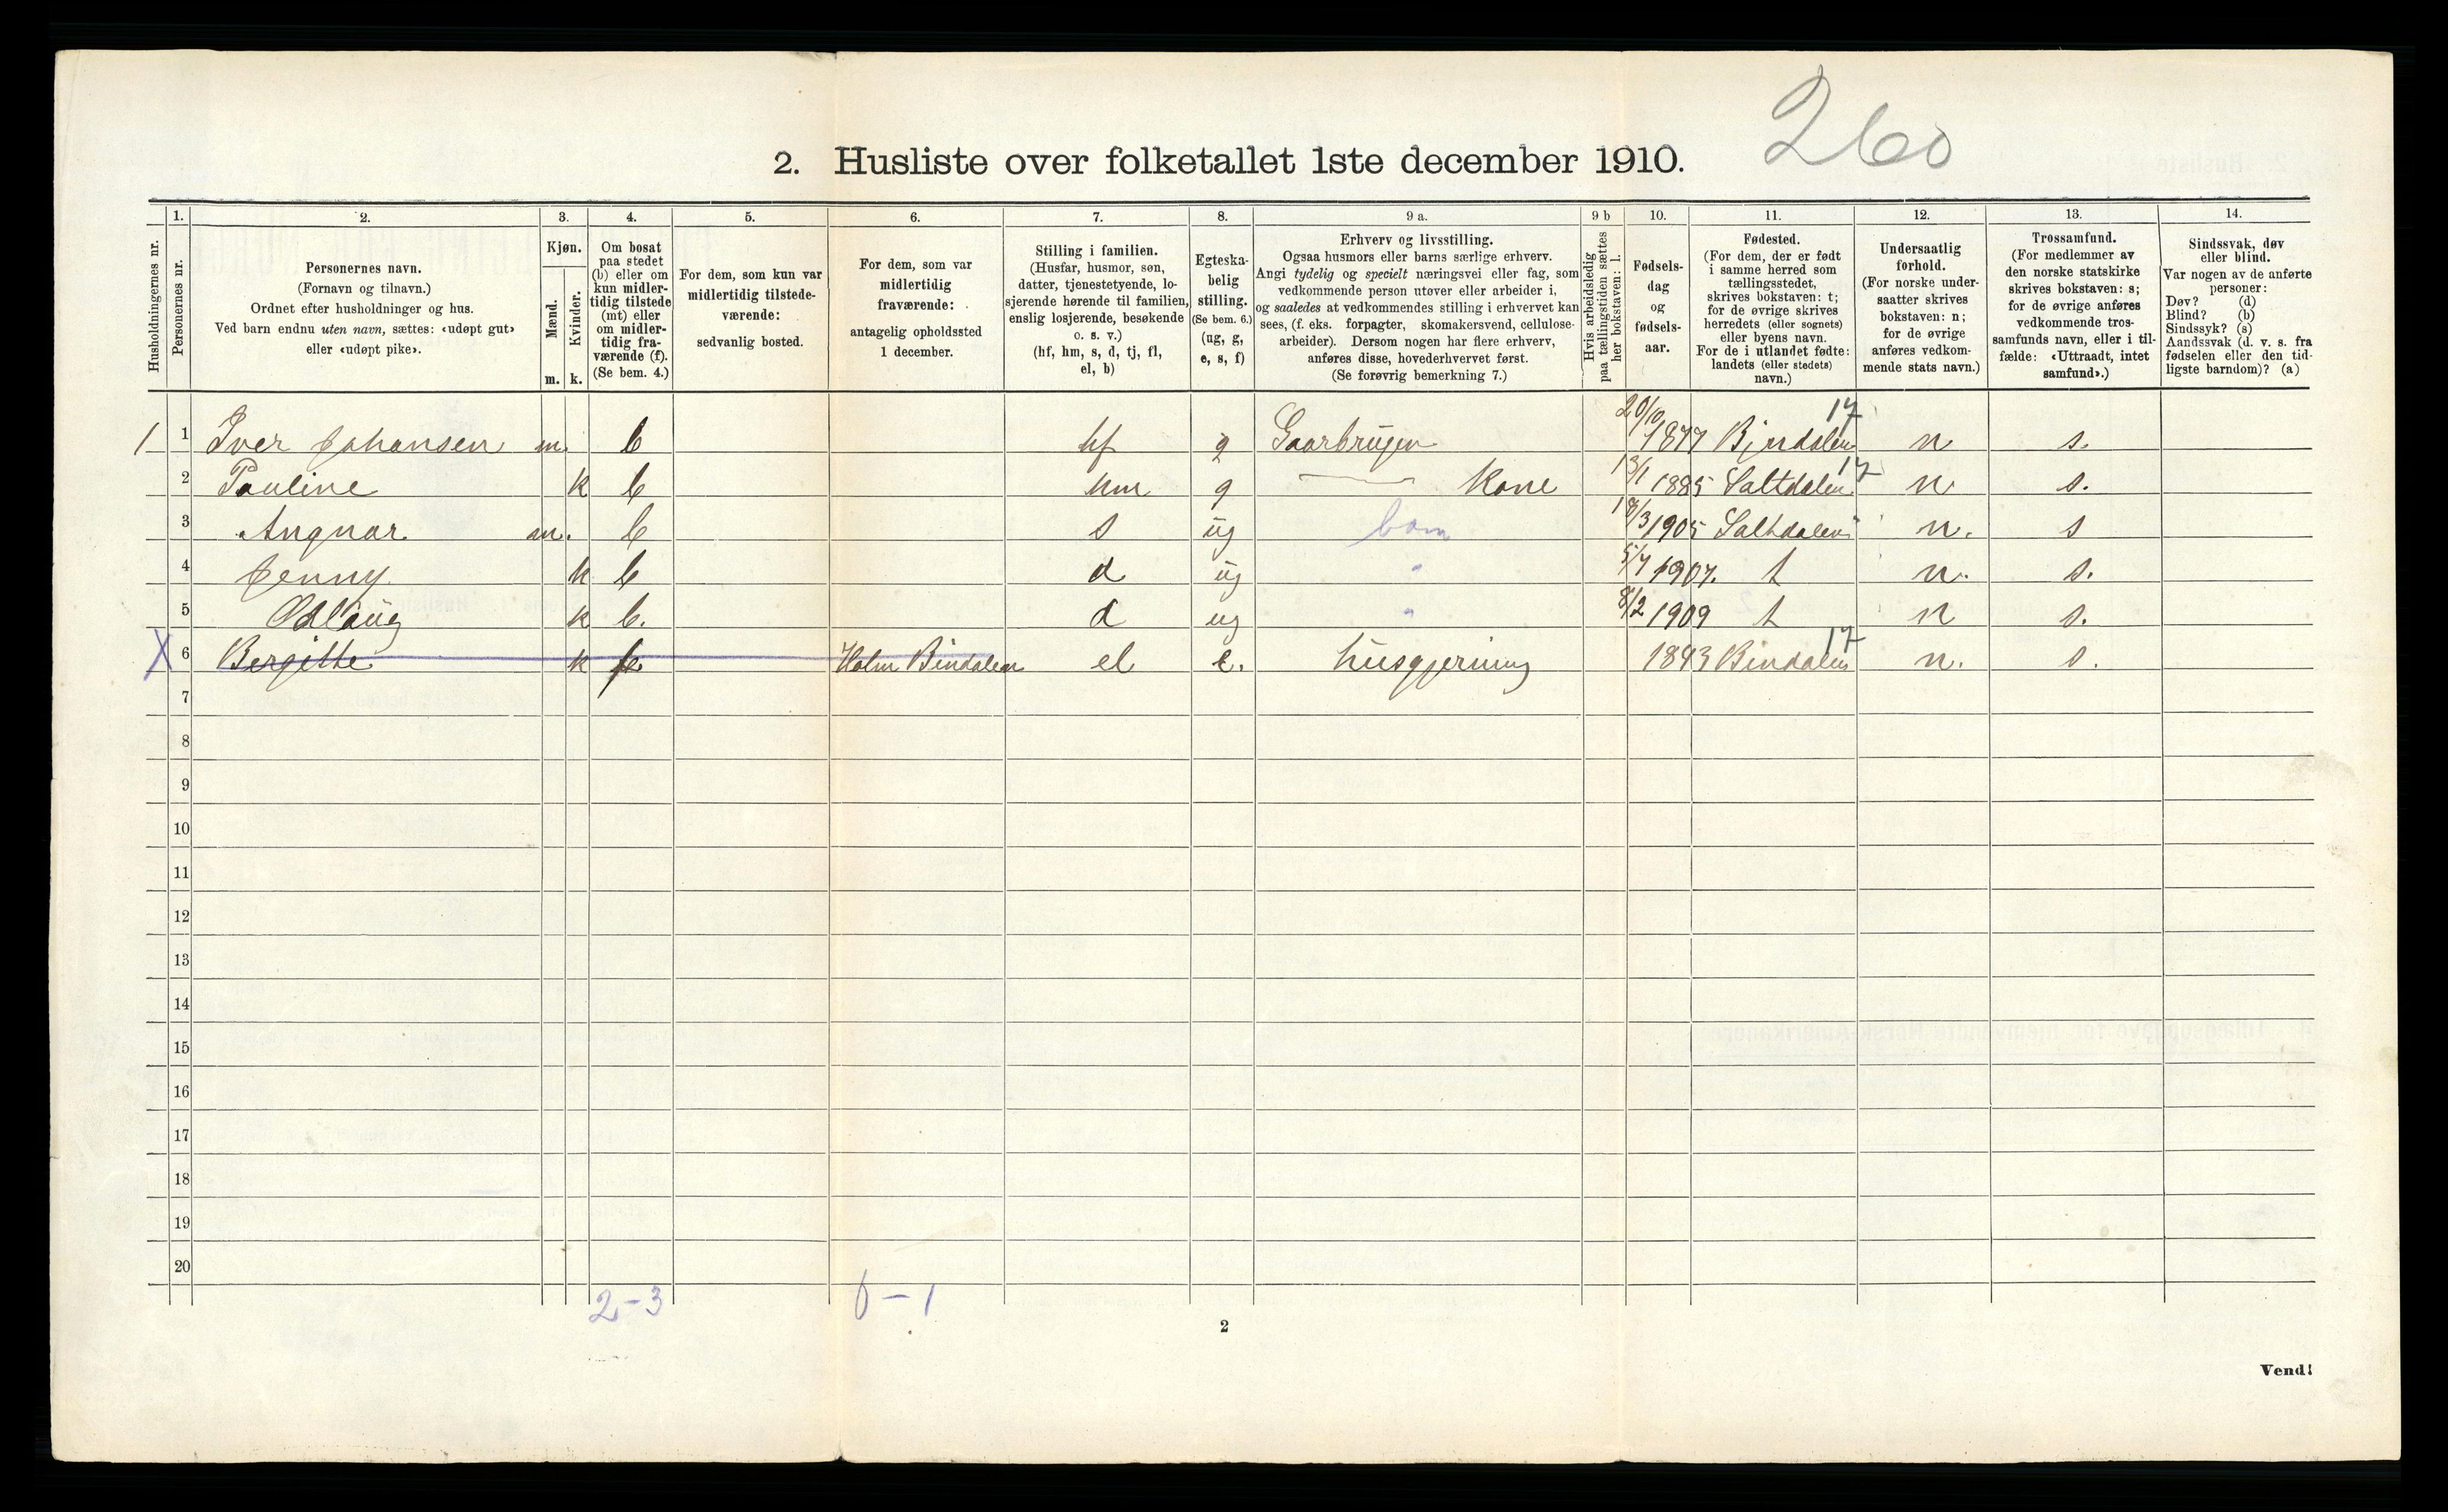 260
2. Husliste over folketallet 1ste december 1910.
Husholdningernes nr.
1.
Personernes nr.
2.
Personernes navn.
(Fornavn og tilnavn.)
Ordnet efter husholdninger og hus.
Ved barn endnu uten navn, sættes: «udøpt gut»
eller «udøpt pike».
3.
Kjøn.
Mænd.
m.
Kvinder.
k.
4.
Om bosat
paa stedet
(b) eller om
kun midler-
tidig tilstede
(mt) eller
om midler-
tidig fra-
værende (f).
(Se bem. 4.)
5.
For dem, som kun var
midlertidig tilstede-
værende:
sedvanlig bosted.
6.
For dem, som var
midlertidig
fraværende:
antagelig opholdssted
1 december.
7.
Stilling i familien.
(Husfar, husmor, søn,
datter, tjenestetyende, lo-
sjerende hørende til familien,
enslig losjerende, besøkende
o. s. v.)
(hf, hm, s, d, tj, fl,
el, b)
8.
Egteska-
belig
stilling.
(Se bem. 6.)
(ug, g,
e, s, f)
9 a.
Erhverv og livsstilling.
Ogsaa husmors eller barns særlige erhverv.
Angi tydelig og specielt næringsvei eller fag, som
vedkommende person utøver eller arbeider i,
og saaledes at vedkommendes stilling i erhvervet kan
sees, (f. eks. forpagter, skomakersvend, cellulose-
arbeider). Dersom nogen har flere erhverv,
anføres disse, hovederhvervet først.
(Se forøvrig bemerkning 7.)
9 b
Hvis arbeidsledig
paa tællingstiden sættes
her bokstaven: l.
10.
Fødsels-
dag
og
fødsels-
aar.
11.
Fødested.
(For dem, der er født
i samme herred som
tællingsstedet,
skrives bokstaven: t;
for de øvrige skrives
herredets (eller sognets)
eller byens navn.
For de i utlandet fødte:
landets (eller stedets)
navn.)
12.
Undersaatlig
forhold.
(For norske under-
saatter skrives
bokstaven: n;
for de øvrige
anføres vedkom-
mende stats navn.)
13.
Trossamfund.
(For medlemmer av
den norske statskirke
skrives bokstaven: s;
for de øvrige anføres
vedkommende tros-
samfunds navn, eller i til-
fælde: «Uttraadt, intet
samfund».)
14.
Sindssvak, døv
eller blind.
Var nogen av de anførte
personer:
Døv? (d)
Blind? (b)
Sindssyk? (s)
Aandssvak (d. v. s. fra
fødselen eller den tid-
ligste barndom)? (a)
1 1 Iver Johansen m. b hf g Gaarbruger 20/10 1877 Bjndalen 17 n s.
2 Pauline k b hm g Kone 13/1 1885 Saltdalen 17 n s.
3 Angnar m. b s ug barn 18/3 1905 Saltdalen n. s
4 Jenny k b d ug " 5/7 1907. t n. s.
5 Odlaug k b. d ug " 8/2 1909 t n s.
X 6 Bergitte k f Holm Bindalen el e. husgjerning 1843 Bindalen 17 n. s.
7
8
9
10
11
12
13
14
15
16
17
18
19
20
2-3 0-1
2
Vend!